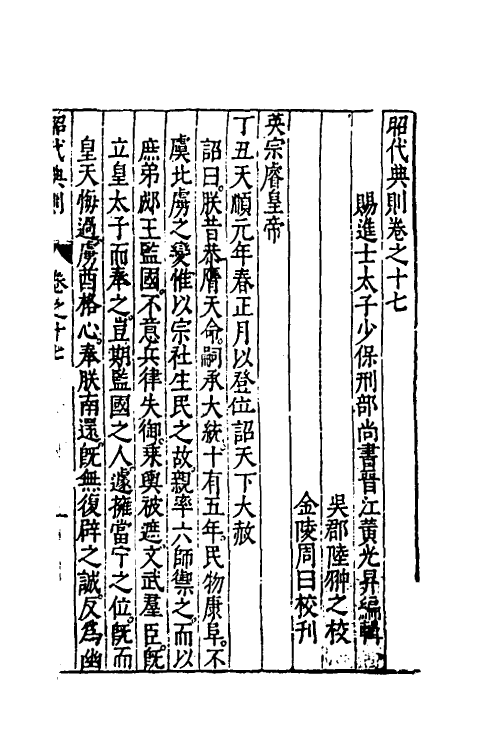 昭代典則卷之十七
賜進士太子少保刑部尚書晉江黃光昇編輯
吳郡陸翀之校
金陵周曰校刊
英宗睿皇帝
丁丑天順元年春正月以登位詔天下大赦
詔曰朕昔恭膺天命嗣承大統十有五年民物康阜不
虞北虜之變惟以宗社生民之故親率六師禦之而以
庶弟郕王監國不意兵律失御乘輿被遮文武羣臣旣
立皇太子而奉之豈期監國之人遽擁當宁之位旣而
皇天悔過虜酋格心奉朕南還旣無復辟之誠反爲幽
昭代典則 卷之十七 一